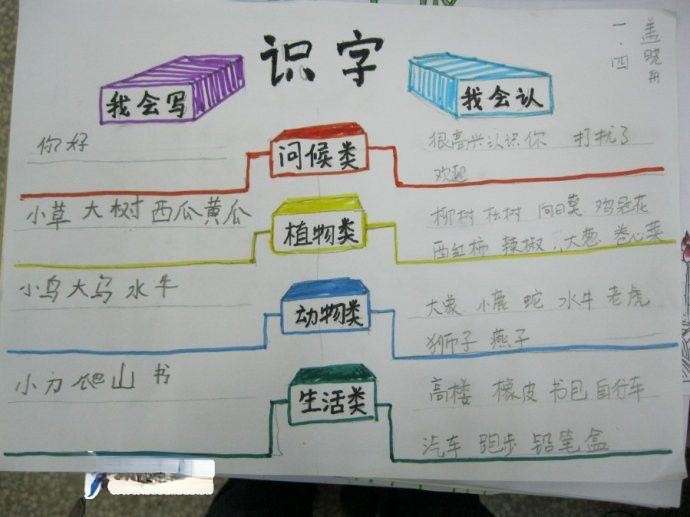 识字
盖晓舟
一.四
我会写
我会认
你好
问候类
很高兴认识你 打扰了
欢迎
小草 大树 西瓜 黄瓜
植物类
柳树 松树 向日葵 鸡冠花
西红柿 辣椒 大葱 卷心菜
小鸟 大鸟 水牛
动物类
大象 小鹿 蛇 水牛 老虎
狮子 燕子
小刀 爬山 书
生活类
高楼 橡皮 书包 自行车
汽车 跑步 铅笔盒